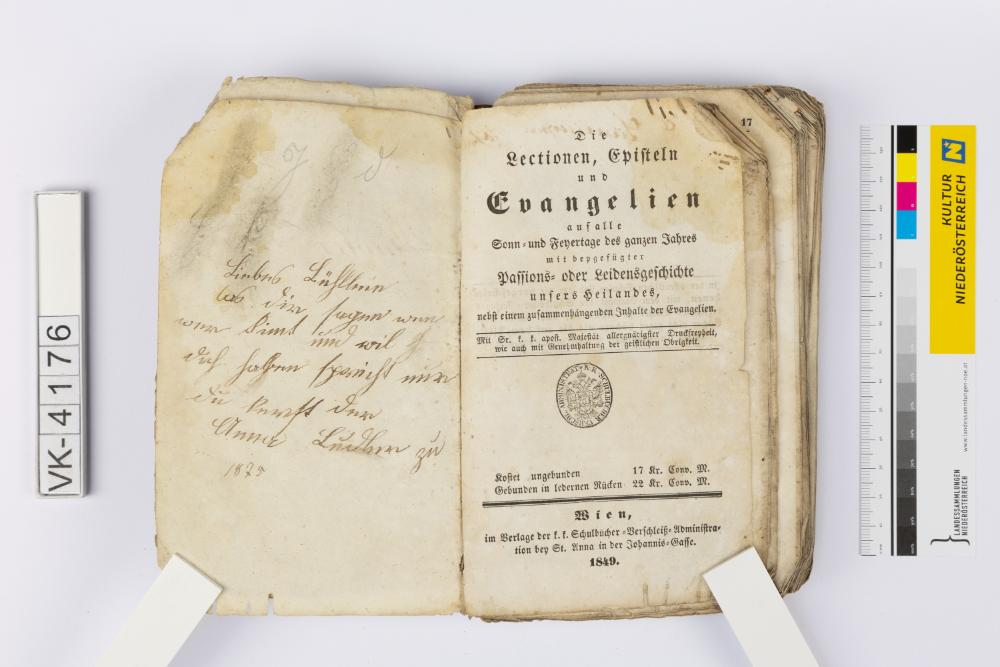 VK-4176
Liebes Büchlein
las dir sagen wen
wer kimt und wil
dich haben sprich nur
du kerst der
Anna zu
1875
17
Die
Lectionen, Episteln
und
Evangelien
auf alle
Sonn- und Feyertage des ganzen Jahres
mit beygefügter
Passions- oder Leidensgeschichte
unsers Heilandes,
nebst einem zusammenhängenden Inhalte der Evangelien.
Mit Sr. k. k. apost. Majestät allergnädigster Druckfreyheit,
wie auch mit Genehmhaltung der geistlichen Obrigkeit.
Kostet ungebunden 17 Kr. Conv. M.
Gebunden in ledernen Rücken 22 Kr. Conv. M.
Wien,
im Verlage der k. k. Schulbücher-Verschleiß-Administra-
tion bey St. Anna in der Johannis-Gasse.
1849.
KULTUR
NIEDERÖSTERREICH
www.landessammlungen-noe.at
LANDESSAMMLUNGEN
NIEDERÖSTERREICH